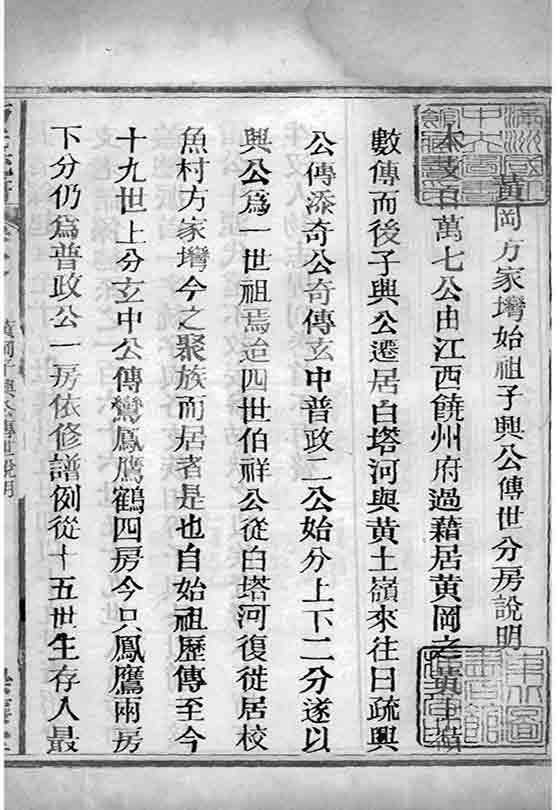 黃岡方家壪始祖子興公傳世分房說明
本支百萬七公由江西饒州府過藉居黃岡之黃土嶺
數傳而後子興公遷居白塔河與黃土嶺來往日疏興
公傳添奇公奇傳玄中普政二公始分上下二分遂以
興公爲一世祖焉迨四世伯祥公從白塔河復徙居校
魚村方家壪今之聚族而居者是也自始祖歷傳至今
十九世上分玄中公傳鸞鳳鷹鶴四房今只鳳鷹兩房
下分仍爲普政公一房依修譜例從十五世生存人最
黃岡子興公傳世說明